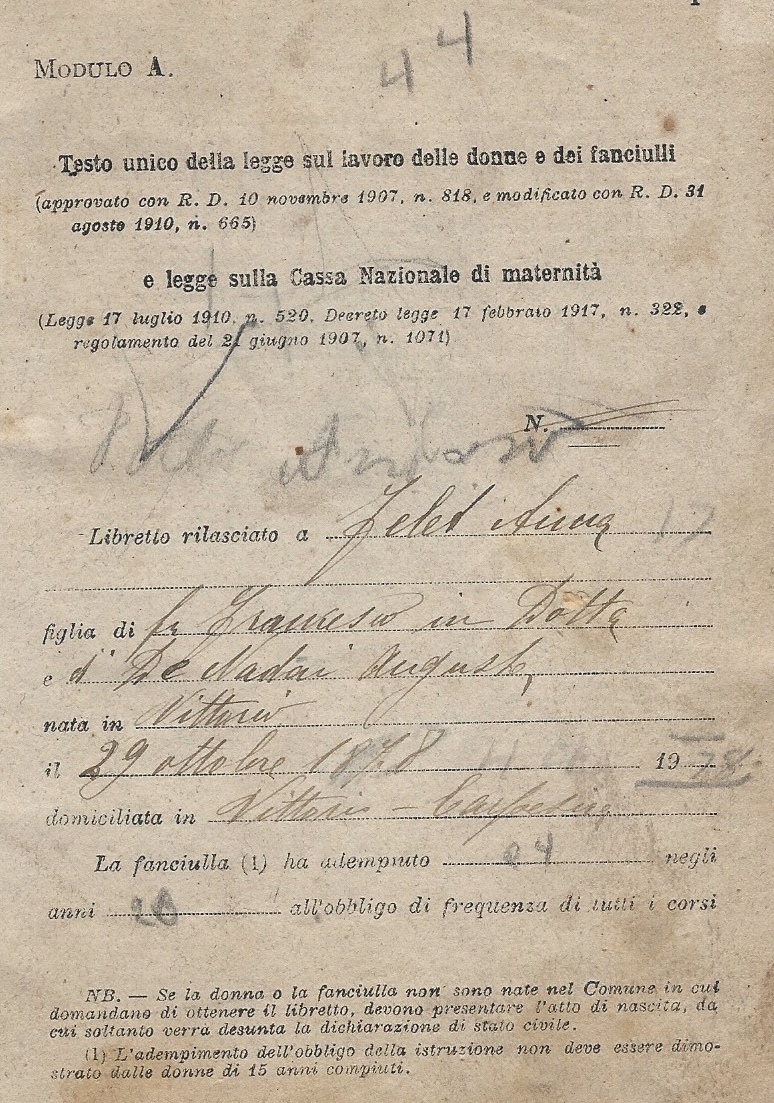 44
MODULO A.
Testo unico della legge sul lavoro delle donne e dei fanciulli
(approvato con R. D. 10 novembre 1907, n. 818, e modificato con R. D. 31
agosto 1910, n. 665)
e legge sulla Cassa Nazionale di maternità
(Legge 17 luglio 1910, n. 520, Decreto legge 17 febbraio 1917, n. 322, e
regolamento del 21 giugno 1907, n. 1071)
N.
Libretto rilasciato a Zelet Anna 17
figlia di fu Francesco in Dotta
e d' De Nadai Augusta
nata in Vittorio
il 29 ottobre 1878 19
domiciliata in Vittorio -
La fanciulla (1) ha adempiuto negli
anni 20 all'obbligo di frequenza di tutti i corsi
NB. — Se la donna o la fanciulla non sono nate nel Comune in cui
domandano di ottenere il libretto, devono presentare l'atto di nascita, da
cui soltanto verrà desunta la dichiarazione di stato civile.
(1) L'adempimento dell'obbligo della istruzione non deve essere dimo-
strato dalle donne di 15 anni compiuti.